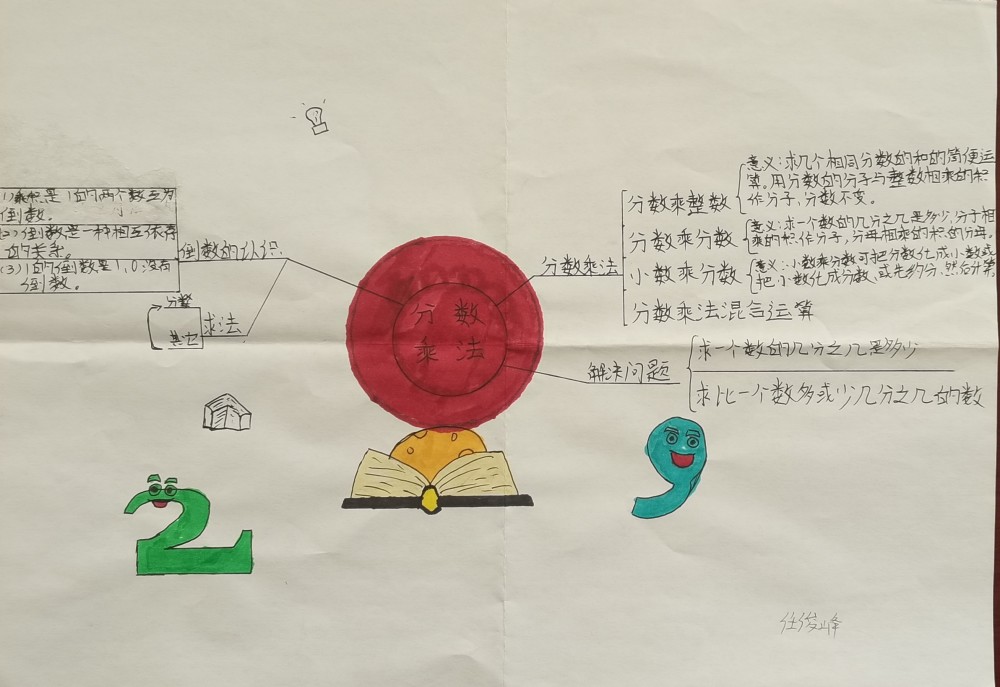 (1)乘积是1的两个数互为
倒数。
(2)倒数是一种相互依存
的关系。
(3)1的倒数是1,0没有
倒数。
倒数的认识
分数
其它
求法
分数
乘法
分数乘法
分数乘整数
意义:求几个相同分数的和的简便运
算。用分数的分子与整数相乘的积
作分子,分数不变。
分数乘分数
意义:求一个数的几分之几是多少,分子相
乘的积作分子,分母相乘的积的分母。
小数乘分数
意义:小数乘分数可把分数化成小数或
把小数化成分数,或先约分,然后计算
分数乘法混合运算
解决问题
求一个数的几分之几是多少
求比一个数多或少几分之几的数
任俊峰